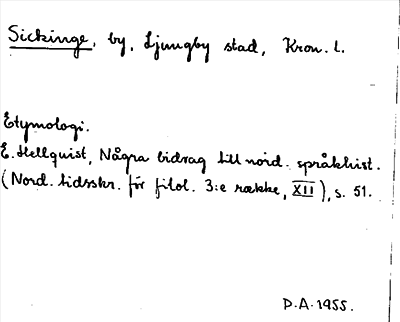 Sickinge, by, Ljungby stad, Kron. l.
Etymologi.
E. Hellquist, Några bidrag till nord. språkhist.
(Nord. tidsskr. för filol. 3:e række, XII), s. 51.
D.A. 1955.